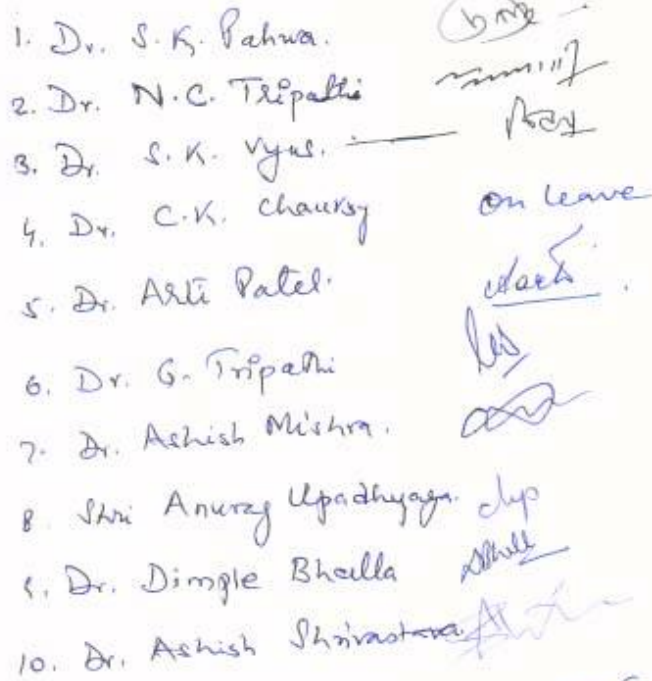 1. Dr. S.K. Pahwa.
2. Dr. N.C. Tripathi
3. Dr. S.K. Vyas.
4. Dr. C.K. Chaursy on leave
5. Dr. Arti Patel.
6. Dr. G. Tripathi
7. Dr. Ashish Mishra.
8 Shri Anurag Upadhyaya.
9. Dr. Dimple Bhalla
10. Dr. Ashish Shrivastava